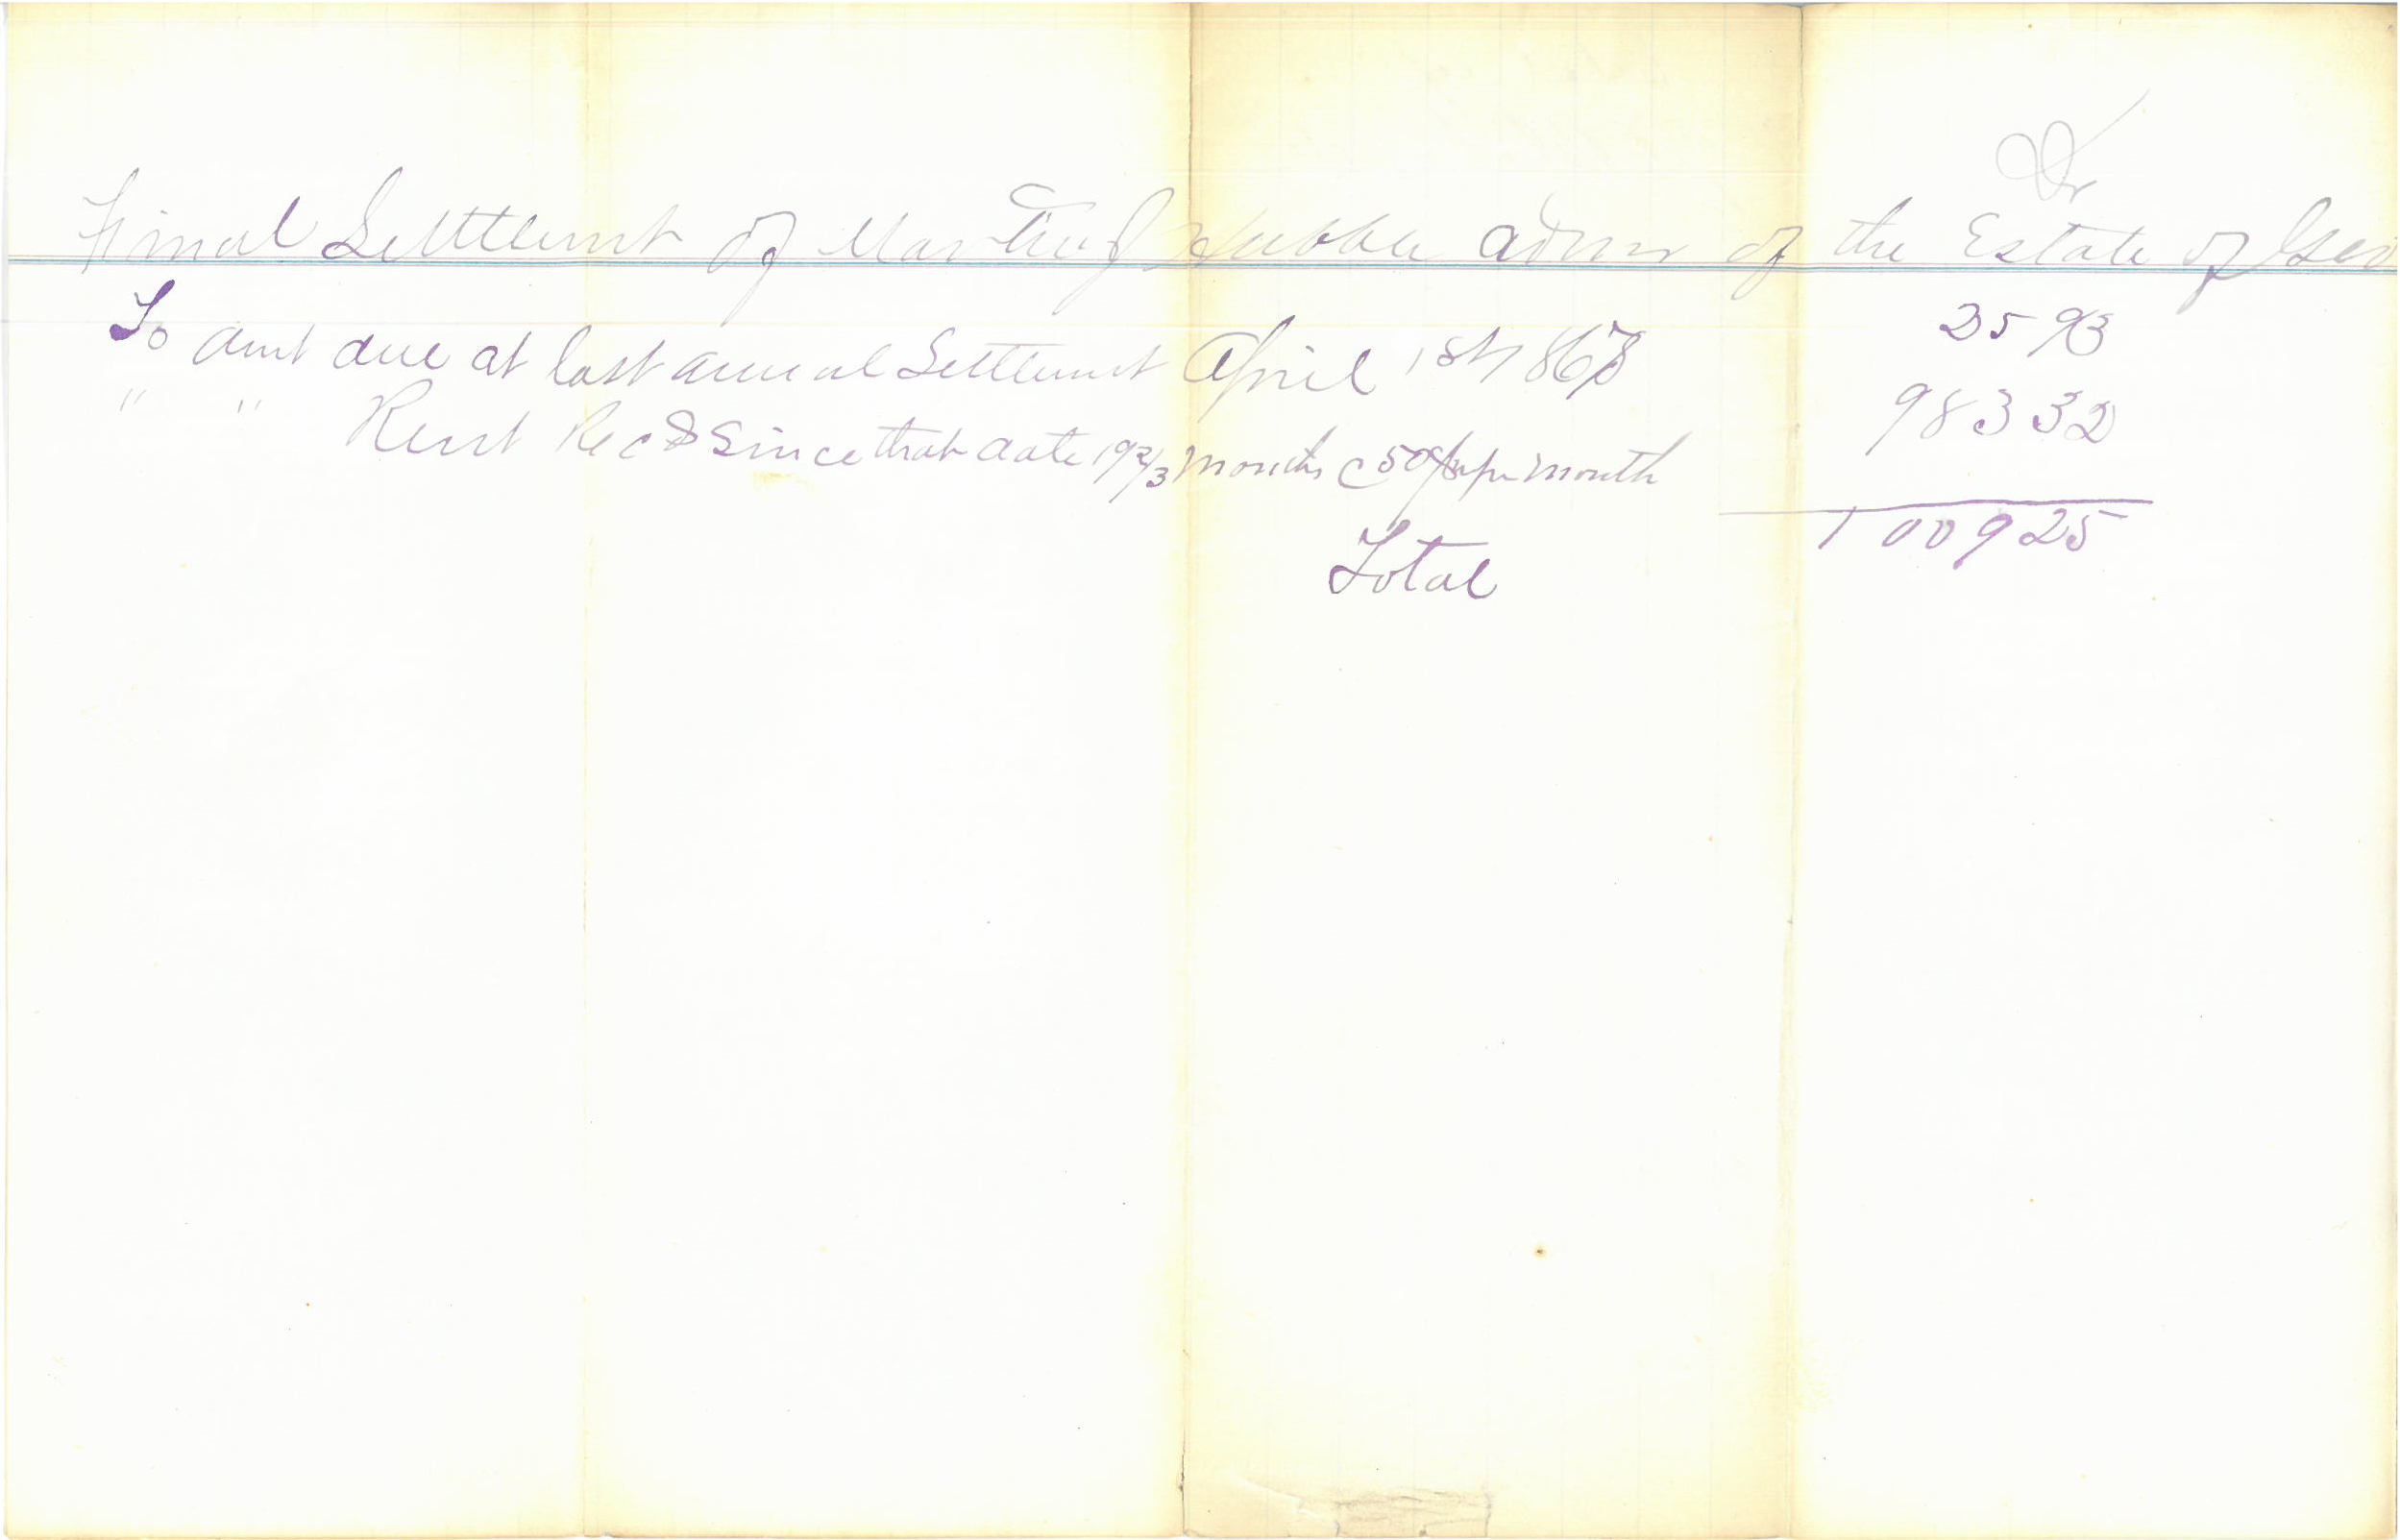 Dr
Final Settlement of Martha J Hubble admr of the Estate of Geo
To amt due at last annual Settlement April 1st 1878 25 93
" " Rent Recd Since that date 19 2/3 months @ 50 per month 983 32
Total 1009 25